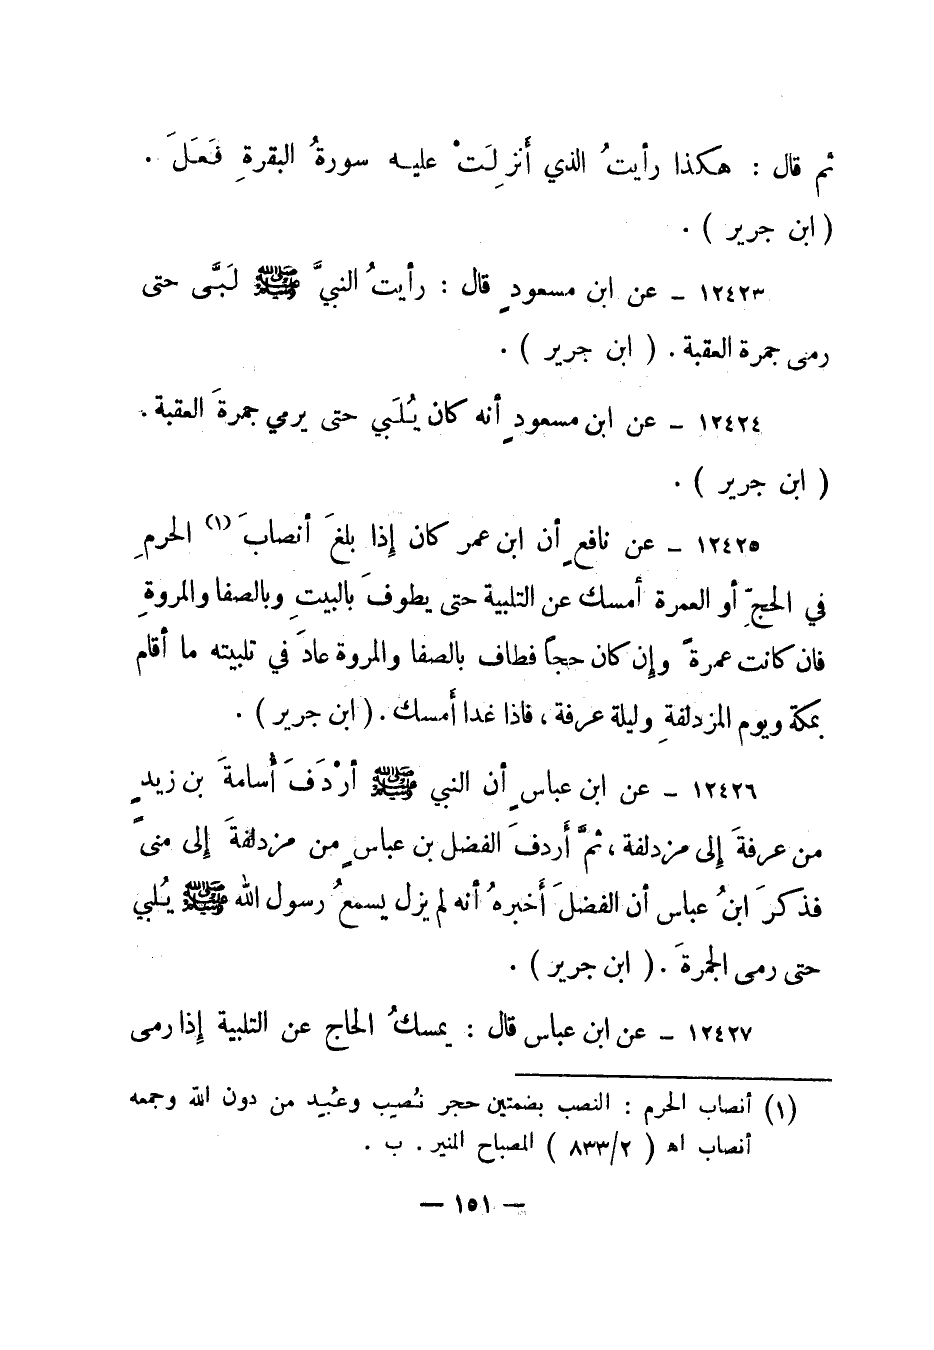 ثم قال : هكذا رأيتُ الذي أُنزِلَتْ عليه سورةُ البقرةِ فَعَلَ .
( ابن جرير ) .
١٢٤٢٣ ـ عن ابن مسعودٍ قال : رأيتُ النبيَّ ﷺ لَبَّى حتى
رمى جمرة العقبة . ( ابن جرير ) .
١٢٤٢٤ ـ عن ابن مسعودٍ أنه كان يُلَبي حتى يرمي جمرةَ العقبة .
( ابن جرير ) .
١٢٤٢٥ ـ عن نافعٍ أن ابن عمر كان إذا بلغَ أنصابَ (١) الحرمِ
في الحجِّ أو العمرة أمسك عن التلبية حتى يطوفَ بالبيتِ وبالصفا والمروةِ
فان كانت عمرةً وإن كان حجاً فطاف بالصفا والمروة عادَ في تلبيته ما أقام
بمكة ويوم المزدلفةِ وليلة عرفة ، فاذا غدا أَمسك . ( ابن جرير ) .
١٢٤٢٦ ـ عن ابن عباسٍ أن النبي ﷺ أرْدَفَ أُسامةَ بن زيدٍ
من عرفةَ إلى مزدلفة ، ثمَّ أَردفَ الفضل بن عباسٍ من مزدلفةَ إلى منىً
فذكرَ ابنُ عباس أن الفضلَ أَخبرهُ أنه لم يزل يسمعُ رسول الله ﷺ يُلبي
حتى رمى الجمرةَ . ( ابن جرير ) .
١٢٤٢٧ ـ عن ابن عباس قال : يمسكُ الحاج عن التلبية إذا رمى
(١) أنصاب الحرم : النصب بضمتين حجر نُصِب وعُبِد من دون الله وجمعه
أنصاب اه ( ٨٣٣/٢ ) المصباح المنير . ب .
— ١٥١ —